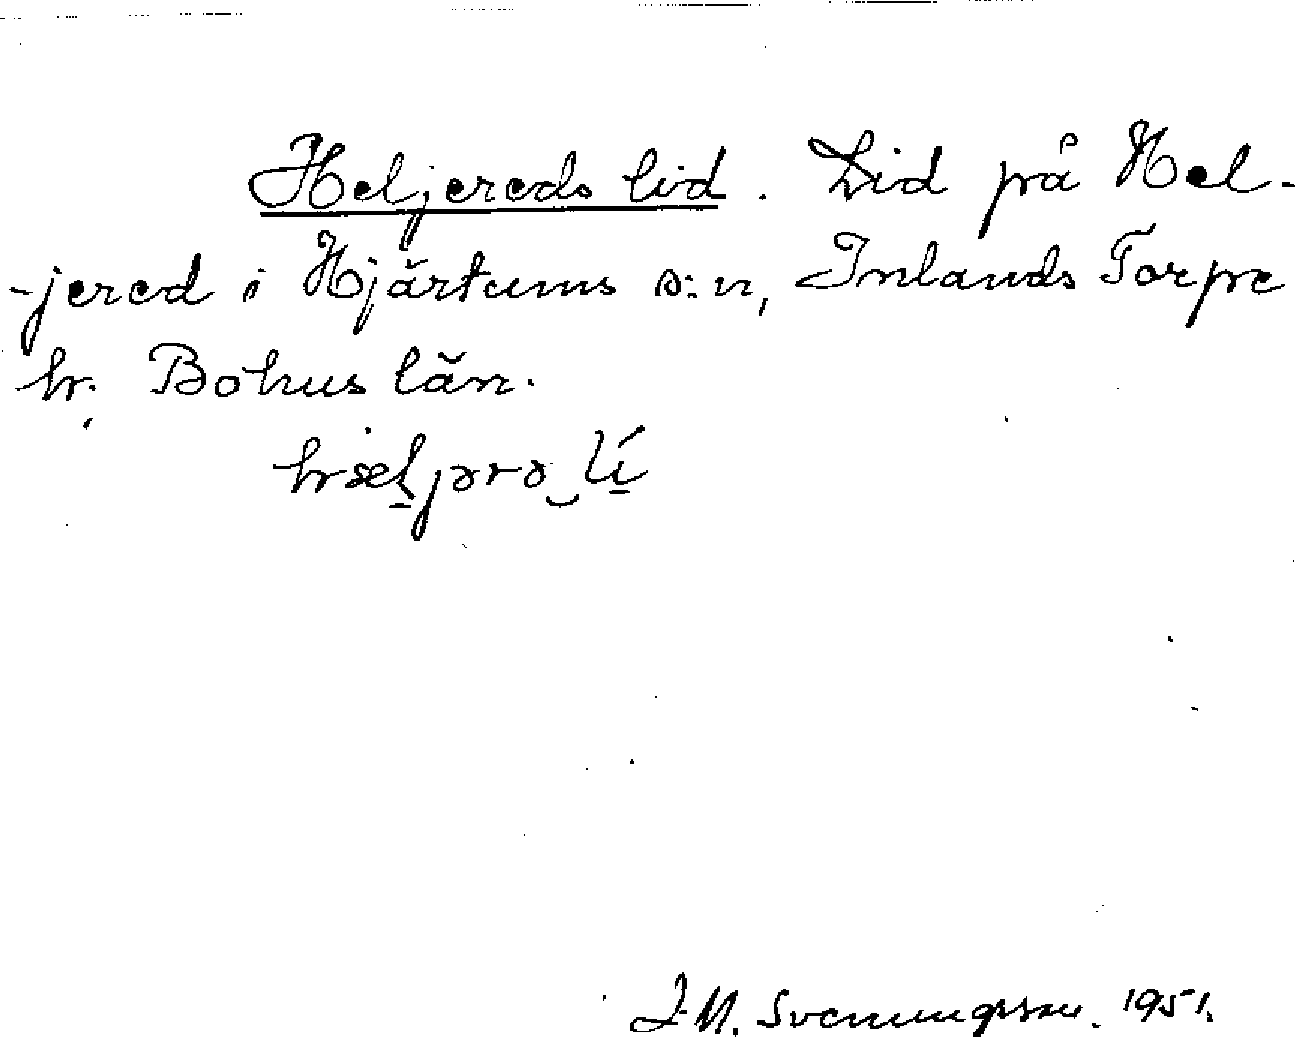 Heljereds lid. Lid på Hel-
-jered i Hjärtums s:n, Inlands Torpe
hr. Bohus län.
J. M. Svenungsson. 1951.